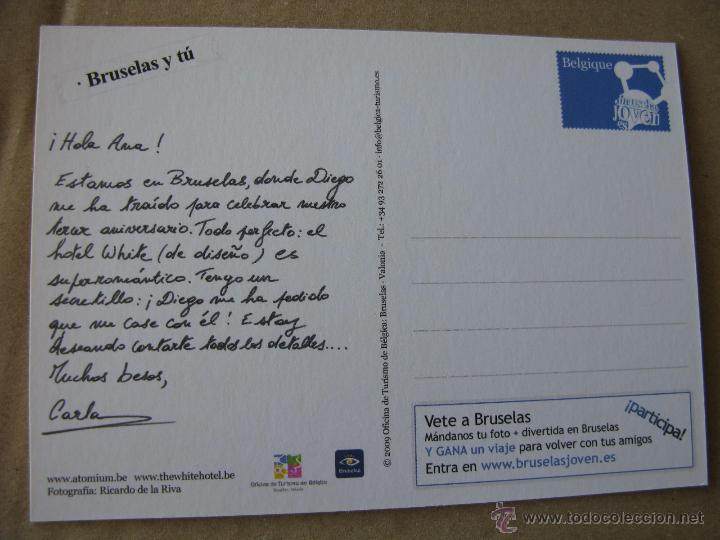 · Bruselas y tú
¡Hola Ana!
Estamos en Bruselas, donde Diego
me ha traído para celebrar nuestro
tercer aniversario. Todo perfecto: el
hotel White (de diseño) es
superromántico. Tengo un
secretillo: ¡Diego me ha pedido
que me case con él! Estoy
deseando contarte todos los detalles....
Muchos besos,
Carla
www.atomium.be www.thewhitehotel.be
Fotografía: Ricardo de la Riva
Oficina de Turismo de Bélgica
© 2009 Oficina de Turismo de Bélgica: Bruselas - Valonia - Tel.: +34 93 272 26 01 - info@belgica-turismo.es
Belgique
bruselas
joven
es
Vete a Bruselas
¡participa!
Mándanos tu foto + divertida en Bruselas
Y GANA un viaje para volver con tus amigos
Entra en www.bruselasjoven.es
www.todocoleccion.net